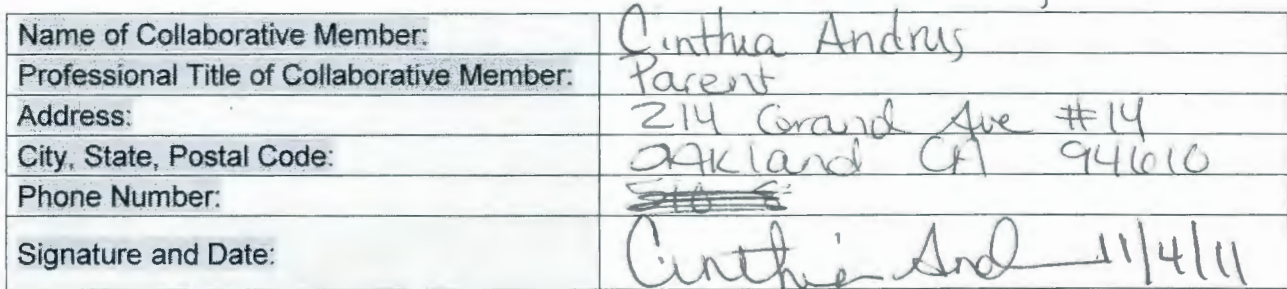 Name of Collaborative Member: Cinthia Andrus
Professional Title of Collaborative Member: Parent
Address: 214 Grand Ave #14
City, State, Postal Code: OAKland CA 94610
Phone Number:
Signature and Date: Cinthia And 11/4/11